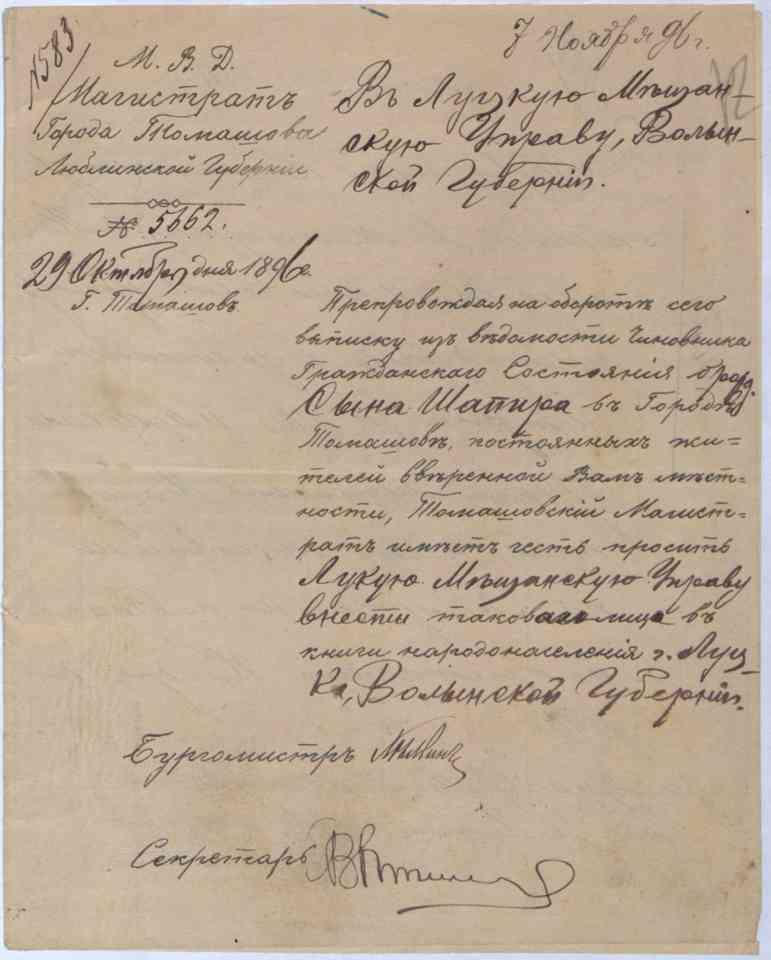 №583
7 Ноября 96 г.
М. В. Д.
Магистратъ
Города Томашова
Люблинской Губерніи
№ 5662.
29 Октября дня 1896 г.
Г. Томашовъ
Въ Луцкую Мѣщан-
скую Управу, Волын-
ской Губерніи.
Препровождая на оборотѣ сего
выписку изъ вѣдомости Чиновника
Гражданскаго Состоянія о рожд.
Сына Шапира въ Городѣ
Томашовѣ, постоянныхъ жи=
телей ввѣренной Вамъ мѣст=
ности, Томашовскій Магист=
ратъ имѣетъ честь просить
Лукую Мѣщанскую Управу
внести таковаго лица въ
книги народонаселенія г. Луц-
ка, Волынской Губерніи.
Бургомистръ
Секретарь